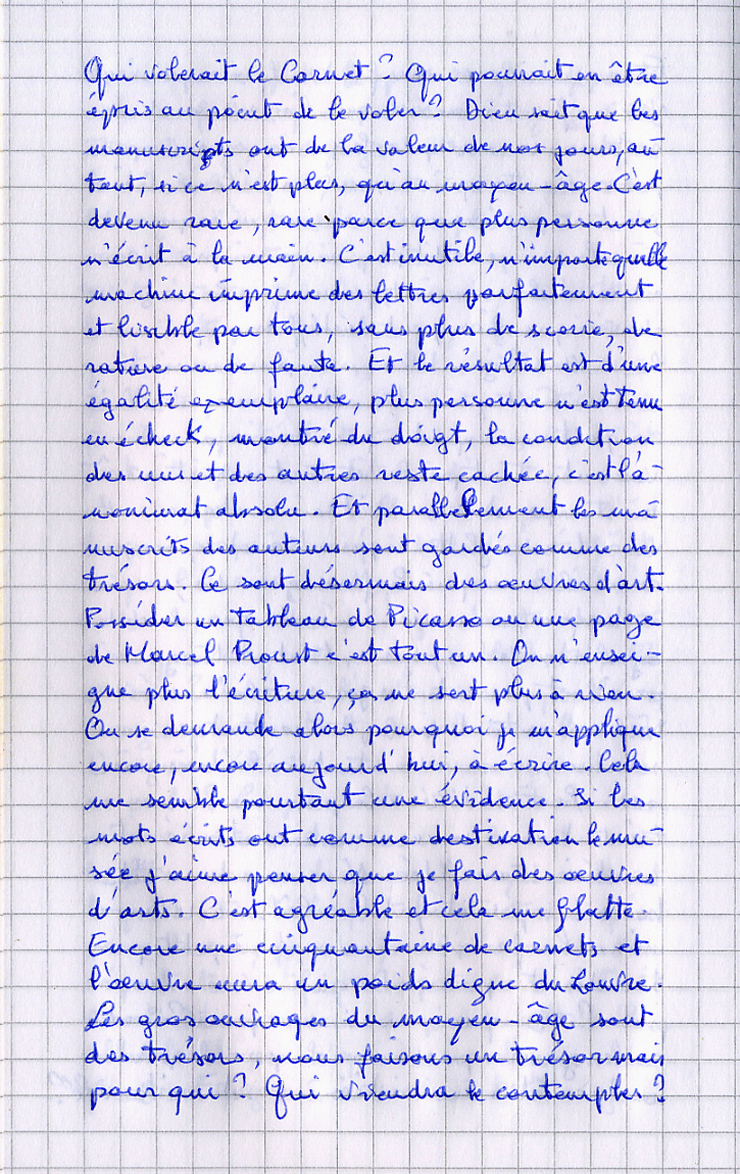 Qui volerait le Carnet ? Qui pourrait en être
épris au point de le voler ? Dieu sait que les
manuscripts ont de la valeur de nos jours, au-
tant, si ce n'est plus, qu'au moyen-âge. C'est
devenu rare, rare parce que plus personne
n'écrit à la main. C'est inutile, n'importe quelle
machine imprime des lettres parfaitement
et lisible par tous, sans plus de scorie, de
rature ou de faute. Et le résultat est d'une
égalité exemplaire, plus personne n'est tenu
en écheck, montré du doigt, la condition
des uns et des autres reste cachée, c'est l'a-
nonimat absolu. Et parallellement les ma-
nuscrits des auteurs sont gardés comme des
trésors. Ce sont désormais des œuvres d'art.
Posséder un tableau de Picasso ou une page
de Marcel Proust c'est tout un. On n'ensei-
gne plus l'écriture, ça ne sert plus à rien.
On se demande alors pourquoi je m'applique
encore, encore aujourd'hui, à écrire. Cela
me semble pourtant une évidence. Si les
mots écrits ont comme destination le mu-
sée j'aime penser que je fais des œuvres
d'arts. C'est agréable et cela me flatte.
Encore une cinquantaine de carnets et
l'œuvre aura un poids digne du Louvre.
Les gros ouvrages du moyen-âge sont
des trésors, nous faisons un trésor mais
pour qui ? Qui viendra le contempler ?